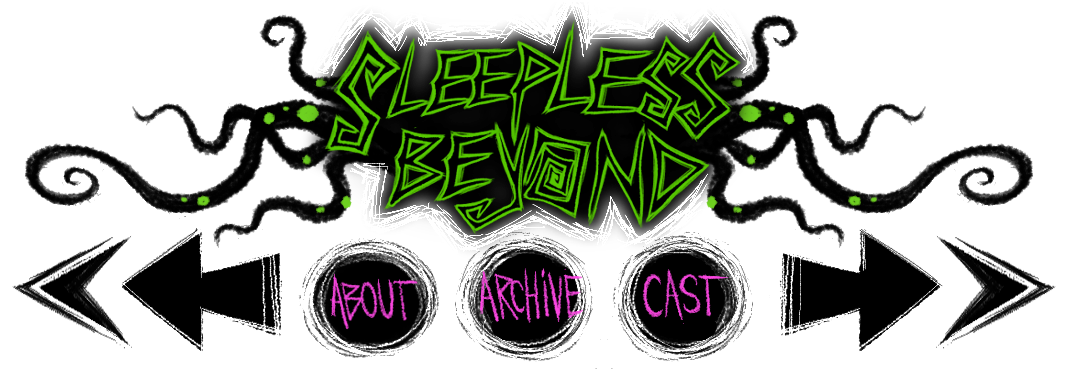 SLEEPLESS
BEYOND
ABOUT ARCHiVE CAST